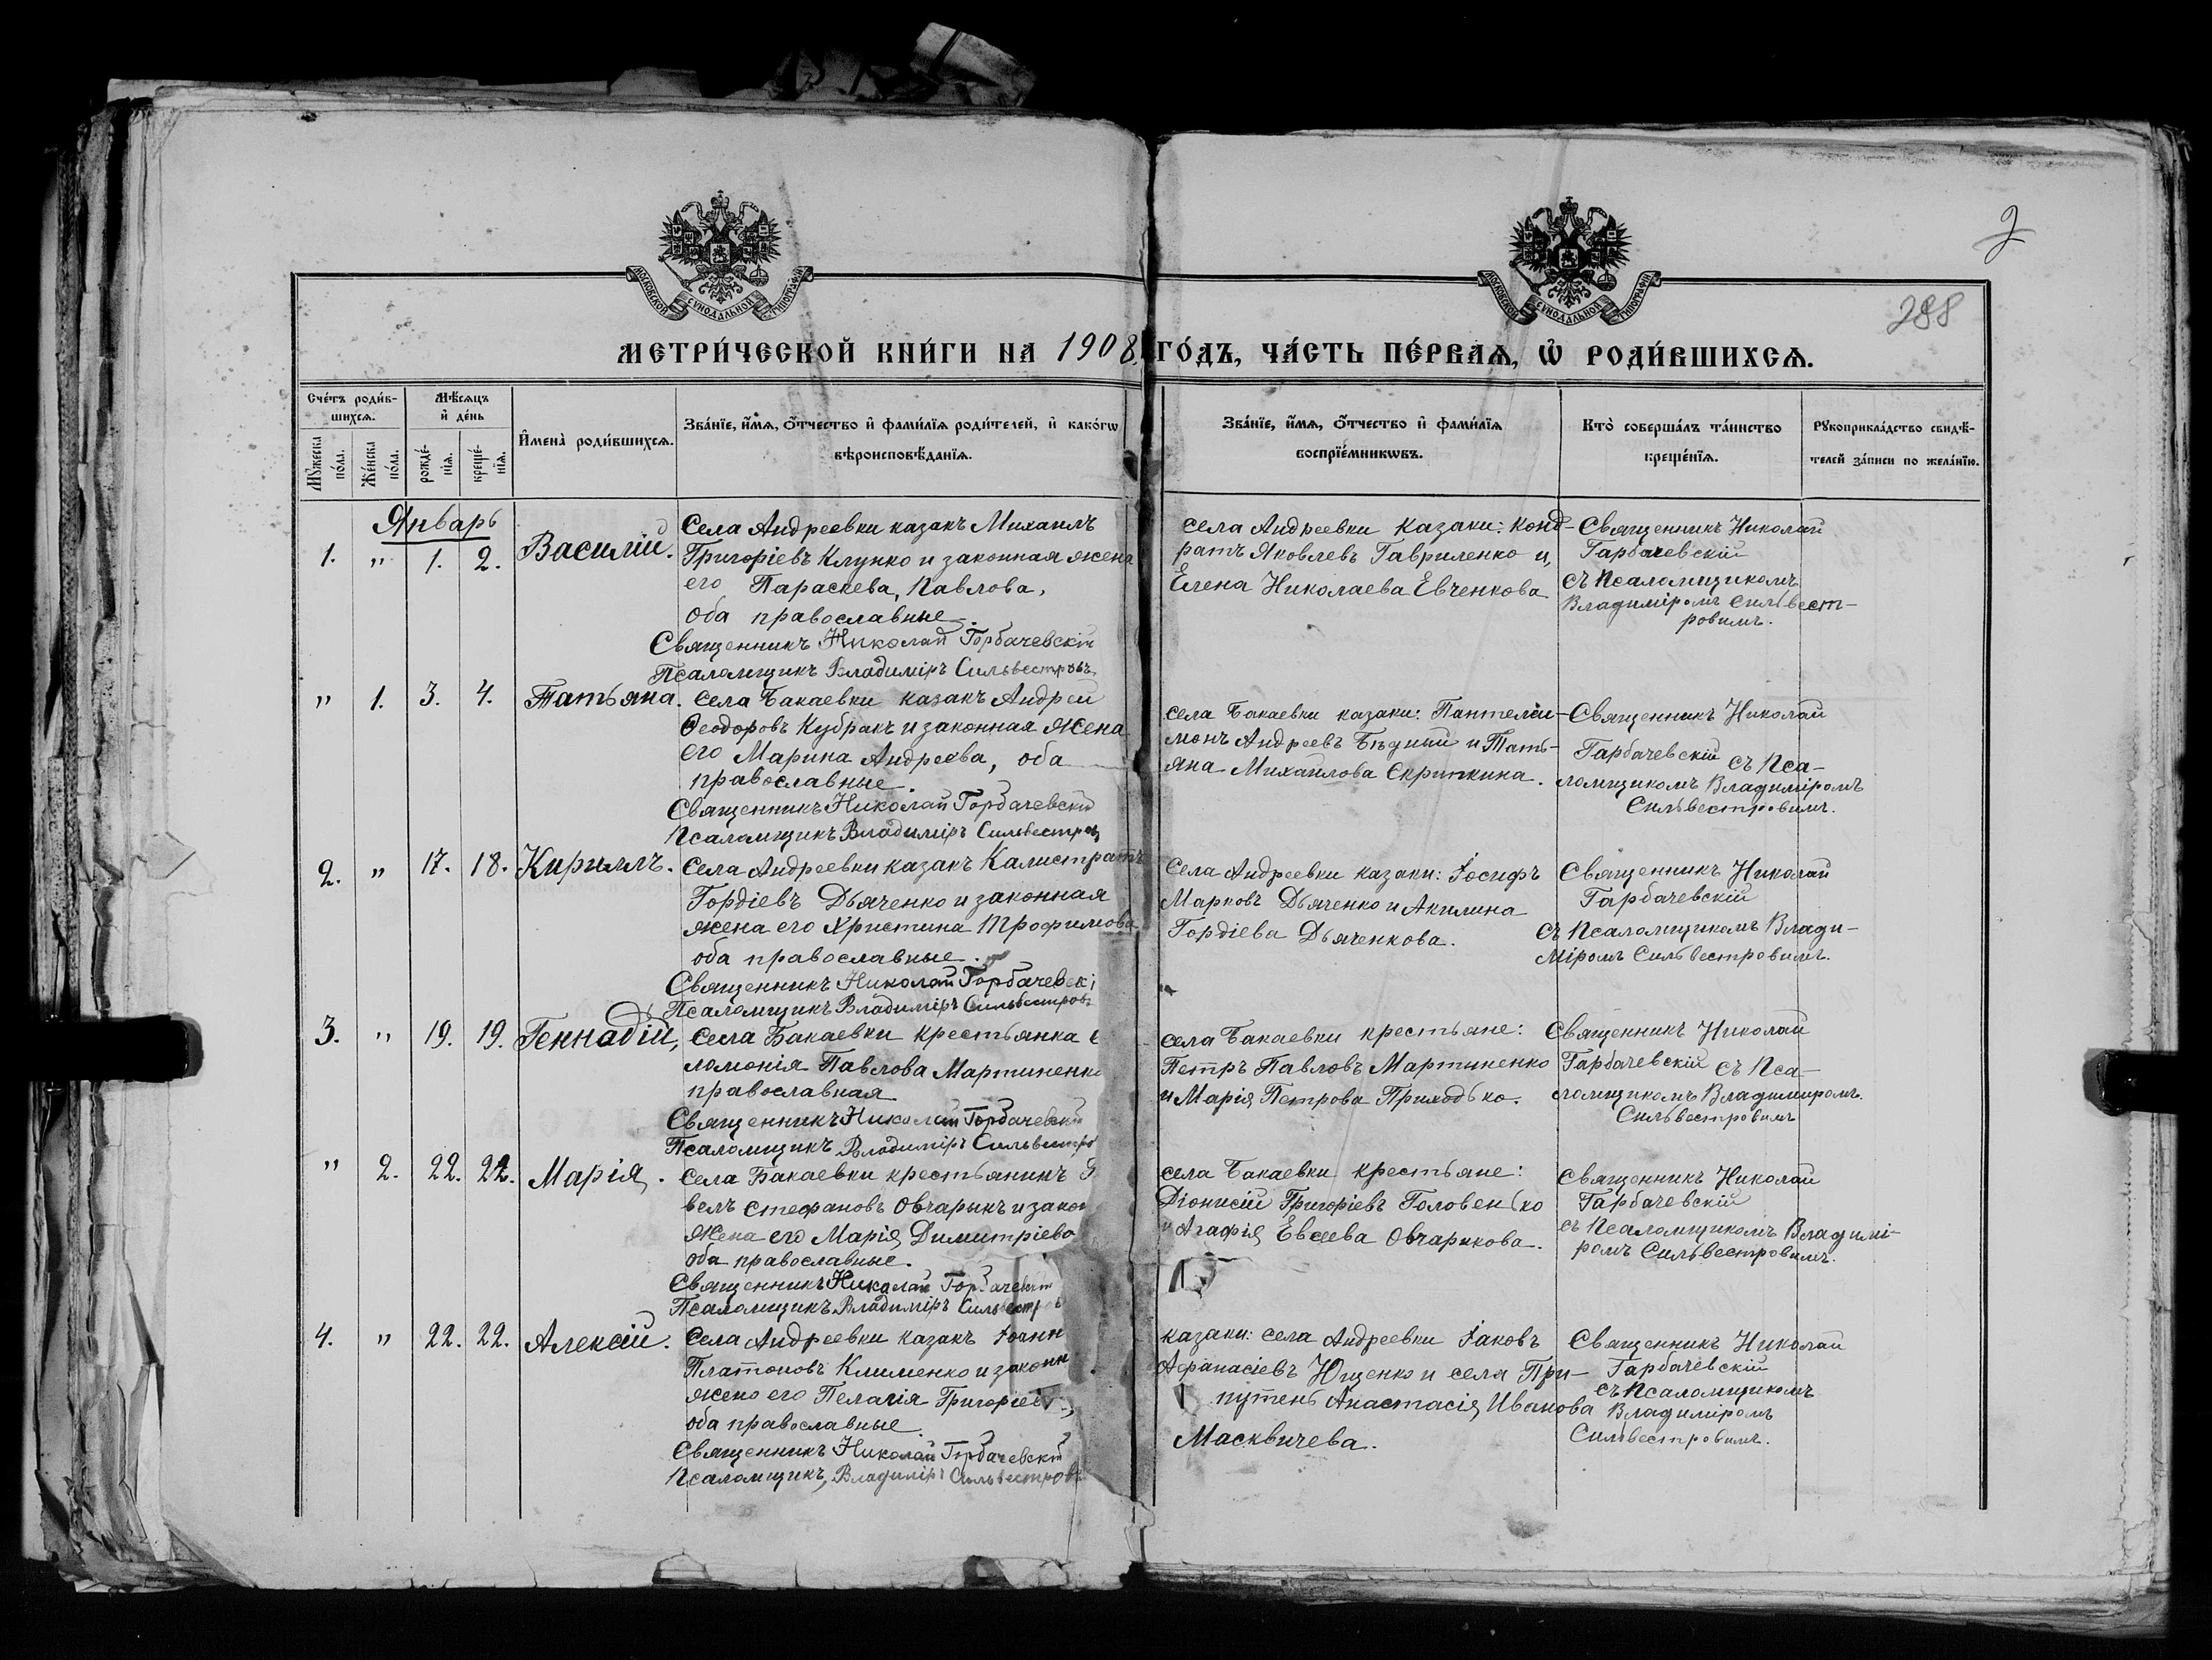 2
288
МОСКОВСКОЙ СѴНОДАЛЬНОЙ ТИПОГРАФІИ
МОСКОВСКОЙ СѴНОДАЛЬНОЙ ТИПОГРАФІИ
МЕТРИ́ЧЕСКОЙ КНИ́ГИ НА 1908 ГО́ДЪ, ЧА́СТЬ ПЕ́РВАѦ, Ѽ РОДИ́ВШИХСѦ.
Сче́тъ роди́в-
шихсѧ.
Мꙋ́жеска по́ла.
Же́нска по́ла.
Мѣ́сѧцъ
и҆ де́нь
рожде́-
нїѧ.
креще́-
нїѧ.
И҆мена̀ роди́вшихсѧ.
Зва́нїе, и҆́мѧ, ѻ҆́тчество и҆ фами́лїѧ роди́телей, и҆ како́гѡ
вѣроисповѣ́данїѧ.
Зва́нїе, и҆́мѧ, ѻ҆́тчество и҆ фами́лїѧ
воспрїе́мникѡвъ.
Кто̀ соверша́лъ та́инство
креще́нїѧ.
Рꙋкоприкла́дство свидѣ́-
телей за́писи по жела́нїю.
Январь
1. " 1. 2. Василій.
Села Андреевки казакъ Михаилъ
Григоріевъ Клунко и законная жена
его Параскева, Павлова,
оба православные.
Священникъ Николай Горбачевскій
Псаломщикъ Владиміръ Сильвестровъ
села Андреевки казаки: Конд-
ратъ Яковлевъ Гавриленко и,
Елена Николаева Евченкова
Священникъ Николай
Гарбачевскій
съ Псаломщикомъ
Владиміромъ Сильвест-
ровимъ.
" 1. 3. 4. Татьяна.
села Бакаевки казакъ Андрей
Ѳеодоровъ Кубракъ и законная жена
его Марина Андреева, оба
православные.
Священникъ Николай Горбачевскій
Псаломщикъ Владиміръ Сильвестров
села Бакаевки казаки: Пантелеи-
монъ Андреевъ Бѣдный и Тать-
яна Михайлова Скрипкина.
Священникъ Николай
Гарбачевскій съ Пса-
ломщикомъ Владиміромъ
Сильвестровимъ.
2. " 17. 18. Кириллъ.
Села Андреевки казакъ Калистратъ
Гордіевъ Дьяченко и законная
жена его Христина Трофимова
оба православные.
Священникъ Николай Горбачевскі
Псаломщикъ Владиміръ Сильвестровъ
Села Андреевки казаки: Іосифъ
Марковъ Дьяченко и Акилина
Гордіева Дьяченкова.
Священникъ Николай
Гарбачевскій
съ Псаломщикомъ Влади-
міромъ Сильвестровимъ.
3. " 19. 19. Геннадій,
Села Бакаевки крестьянка С
ломонія Павлова Мартиненк
православная
Священникъ Николай Горбачевскій
Псаломщикъ Владиміръ Сильвестро
села Бакаевки крестьяне:
Петръ Павловъ Мартиненко
и Марія Петрова Приходько.
Священникъ Николай
Гарбачевскій съ Пса-
ломщикомъ Владимиромъ.
Сильвестровимъ
" 2. 22. 22. Марія.
села Бакаевки крестьянинъ
велъ Стефановъ Овчарыкъ и закон
жена его Марія Димитріева
оба православные.
Священникъ Николай Горбачевск
Псаломщикъ Владиміръ Сильвестров
села Бакаевки крестьяне:
Діонисій Григоріевъ Головенько
и Агафія Евсеева Овчарикова.
Священникъ Николай
Гарбачевскій
съ Псаломщикомъ Владимі-
ромъ Сильвестровимъ.
4. " 22. 22. Алексій.
Села Андреевки казакъ Іоанн
Платоновъ Клименко и законн
жена его Пелагія Григоріев
оба православные.
Священникъ Николай Горбачевскій
Псаломщикъ, Владиміръ Сильвестровъ
казаки: села Андреевки Іаковъ
Афанасіевъ Ющенко и села При-
путень Анастасія Иванова
Масквичева.
Священникъ Николай
Гарбачевскій
съ Псаломщикомъ
Владиміромъ
Сильвестровимъ.